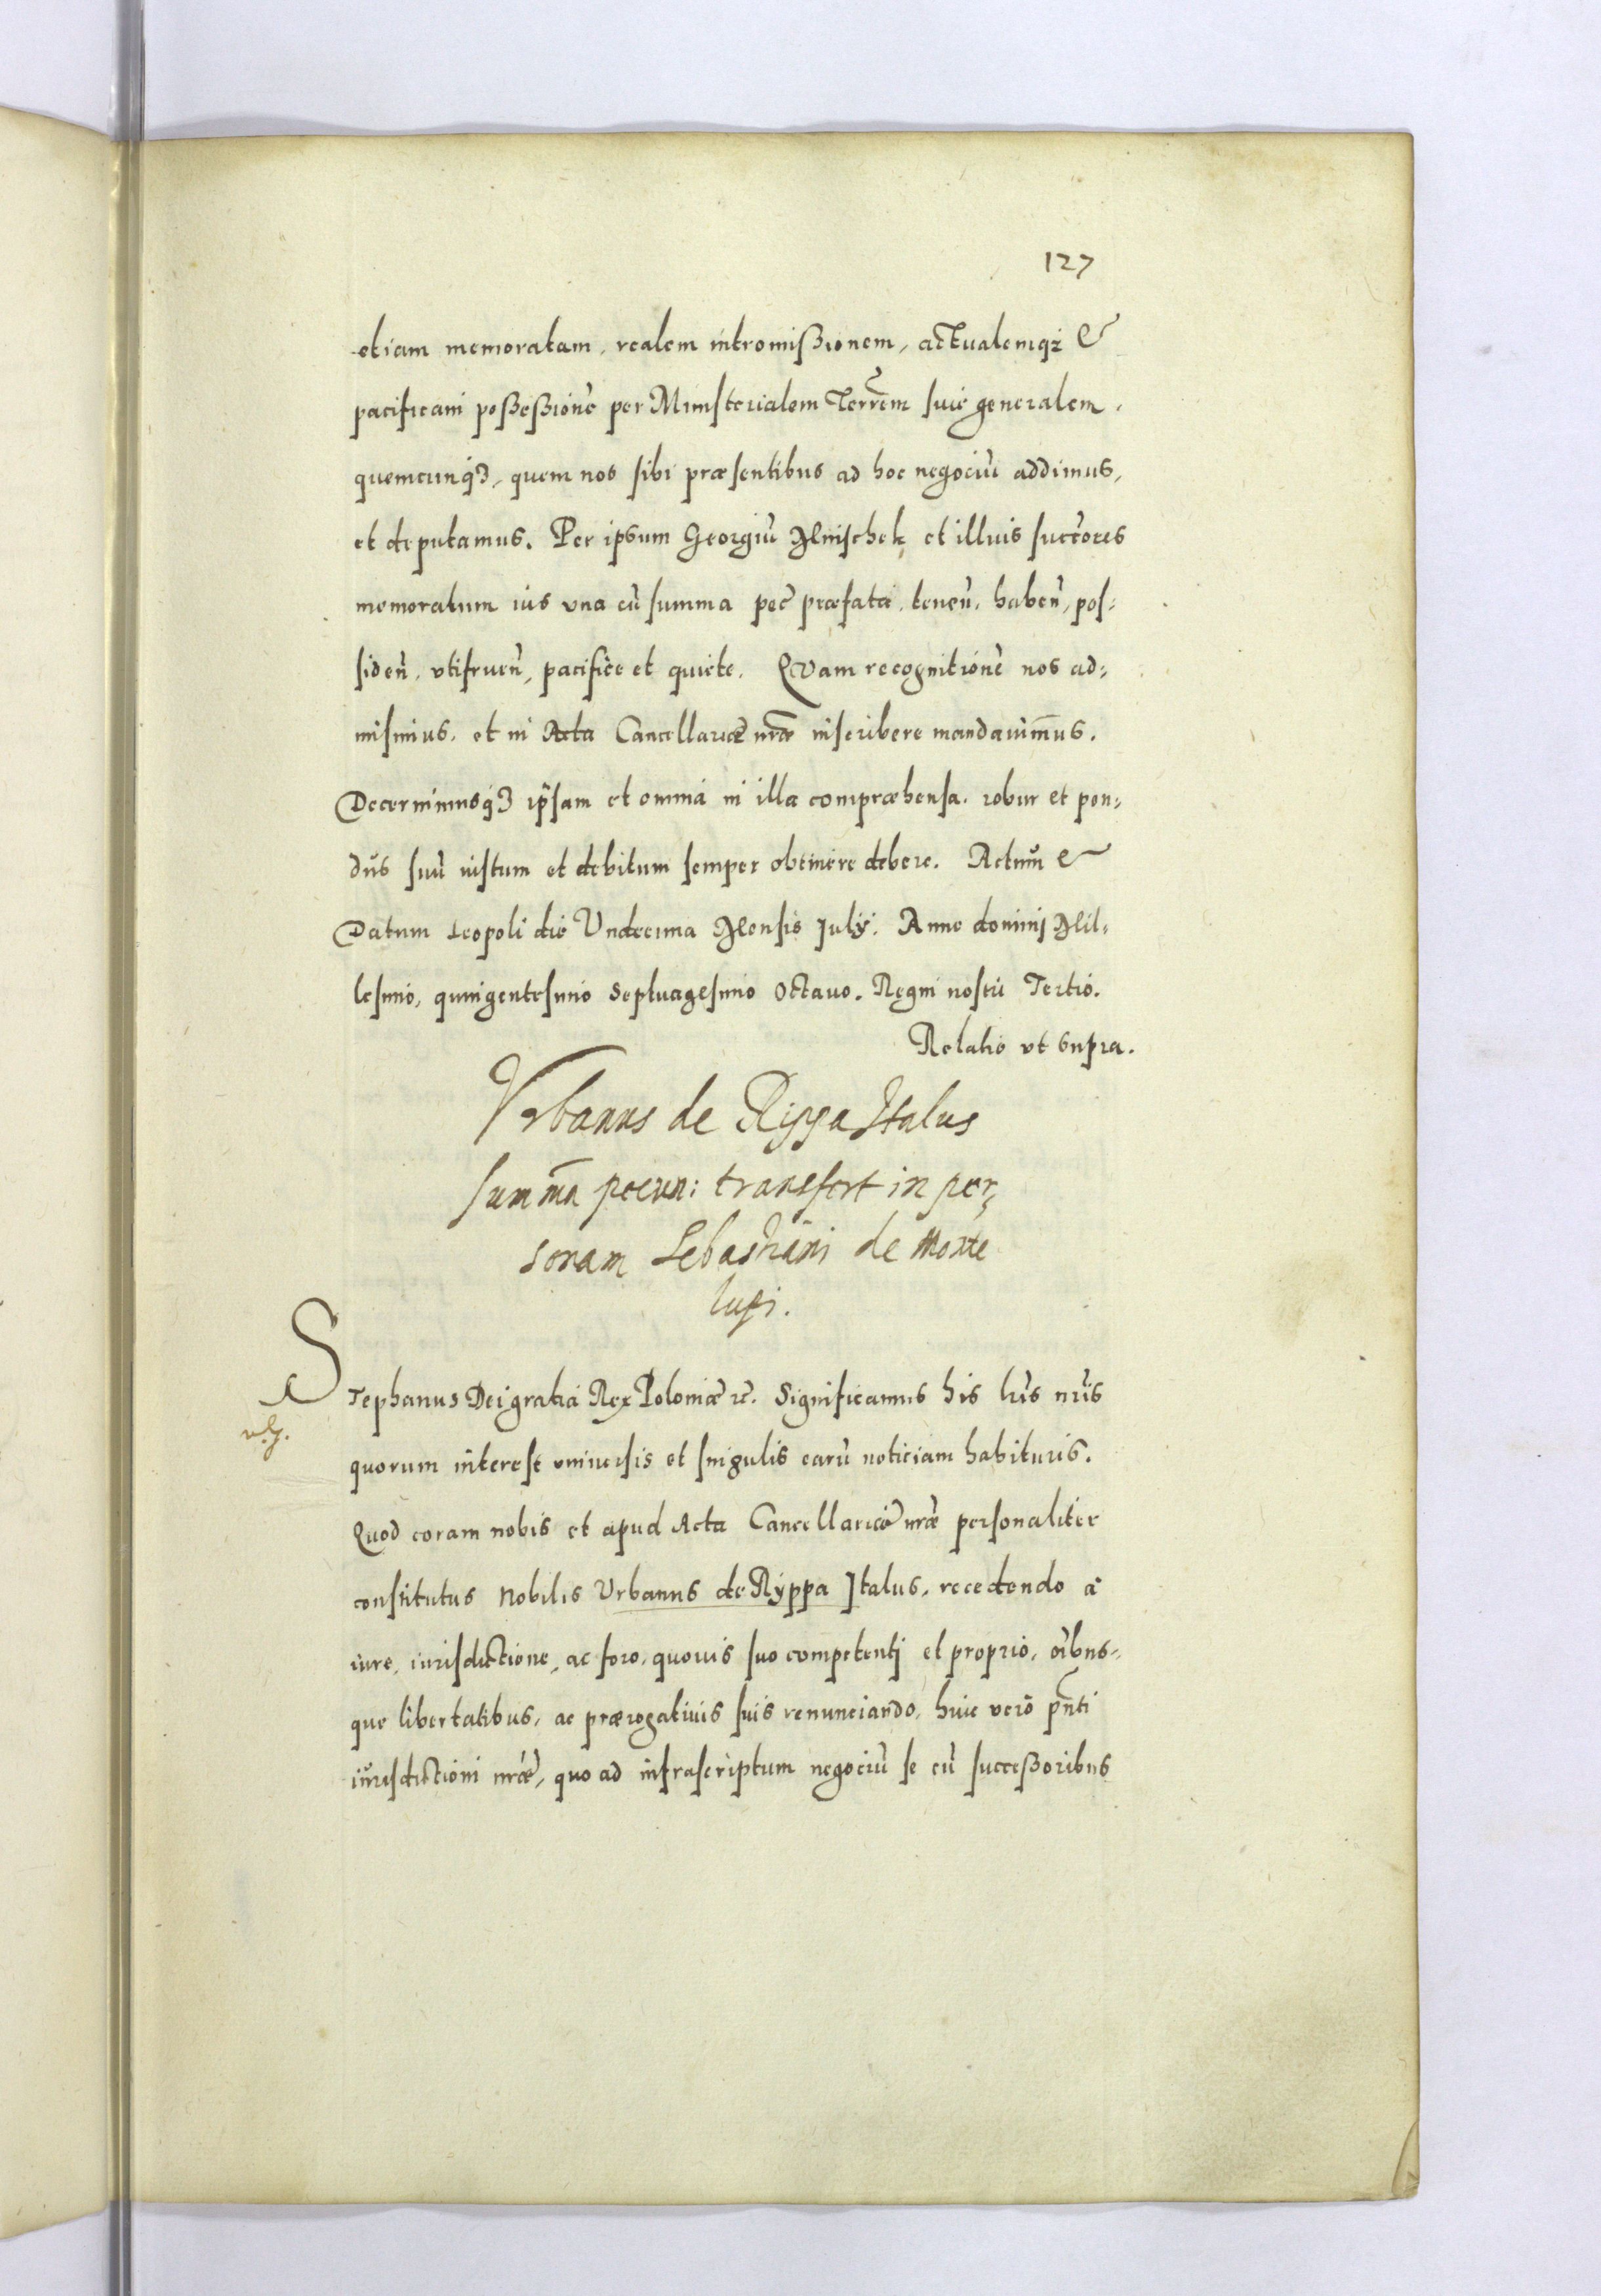 127
etiam memoratam, realem intromißionem, actualemqȝ &
pacificam poßeßionē per Ministerialem Terrem̄ siue generalem,
quemcunqȝ, quem nos sibi præsentibus ad hoc negociū addimus,
et deputamus. Per ipsum Georgiū Mnischek et illius succ̄ores
memoratum ius vna cū summa pec̄ præfata, tenen̄, haben̄, pos:
siden̄, vtifruen̄, pacificè et quiete. Quam recognitionē nos ad:
misimus, et in Acta Cancellariæ nr̄æ inscribere mandauim̄us.
Decernimusqȝ ip̄sam et omnia in illa compræhensa, robur et pon:
dus suū iustum et debitum semper obtinere debere. Actum &
Datum Leopoli die Vndecima Mensis Julij. Anno dominj Mil:
lesimo, quingentesimo Septuagesimo Octauo. Regni nostri Tertio.
Relatio vt supra.
Vrbanus de Rippa Italus
sum̄ma pecun: transfert in per,
sonam Sebastiani de Monte
lupi.
Stephanus Dei gratia Rex Poloniæ &c. Significamus his lr̄is nr̄is
quorum interest vniuersis et singulis earū noticiam habituris.
Quod coram nobis et apud Acta Cancellariæ nr̄æ personaliter
constitutus Nobilis Vrbanus de Ryppa Italus, recedendo à
iure, iurisdictione, ac foro, quouis suo competentj et proprio, oībus:
que libertatibus, ac prærogatiuis suis renunciando, huic verò pn̄ti
iurisdictioni nr̄æ, quo ad infrascriptum negociū se cū succeßoribus